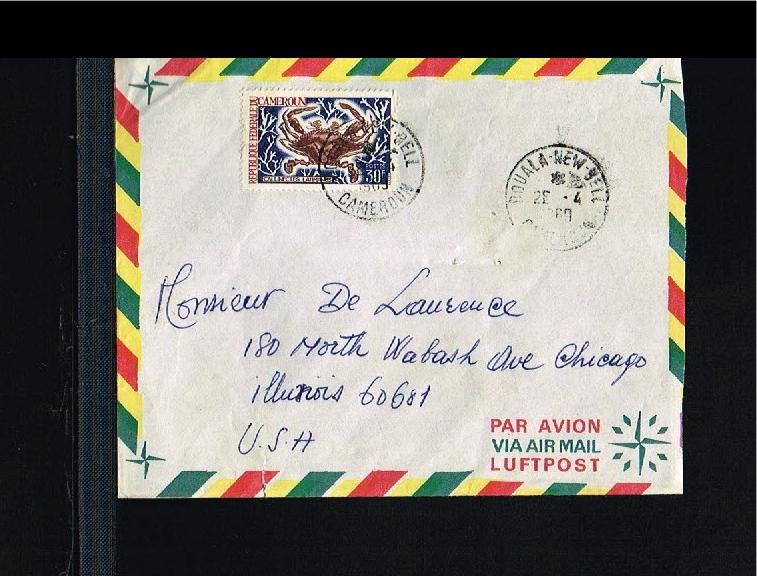 REPUBLIQUE FEDERALE DU
CAMEROUN
POSTES
30F
BELL
CAMEROUN
DOUALA-NEW-BELL
26 -4
Monsieur De Laurence
180 North Wabash Ave Chicago
illinois 60681
U.S.A
PAR AVION
VIA AIR MAIL
LUFTPOST